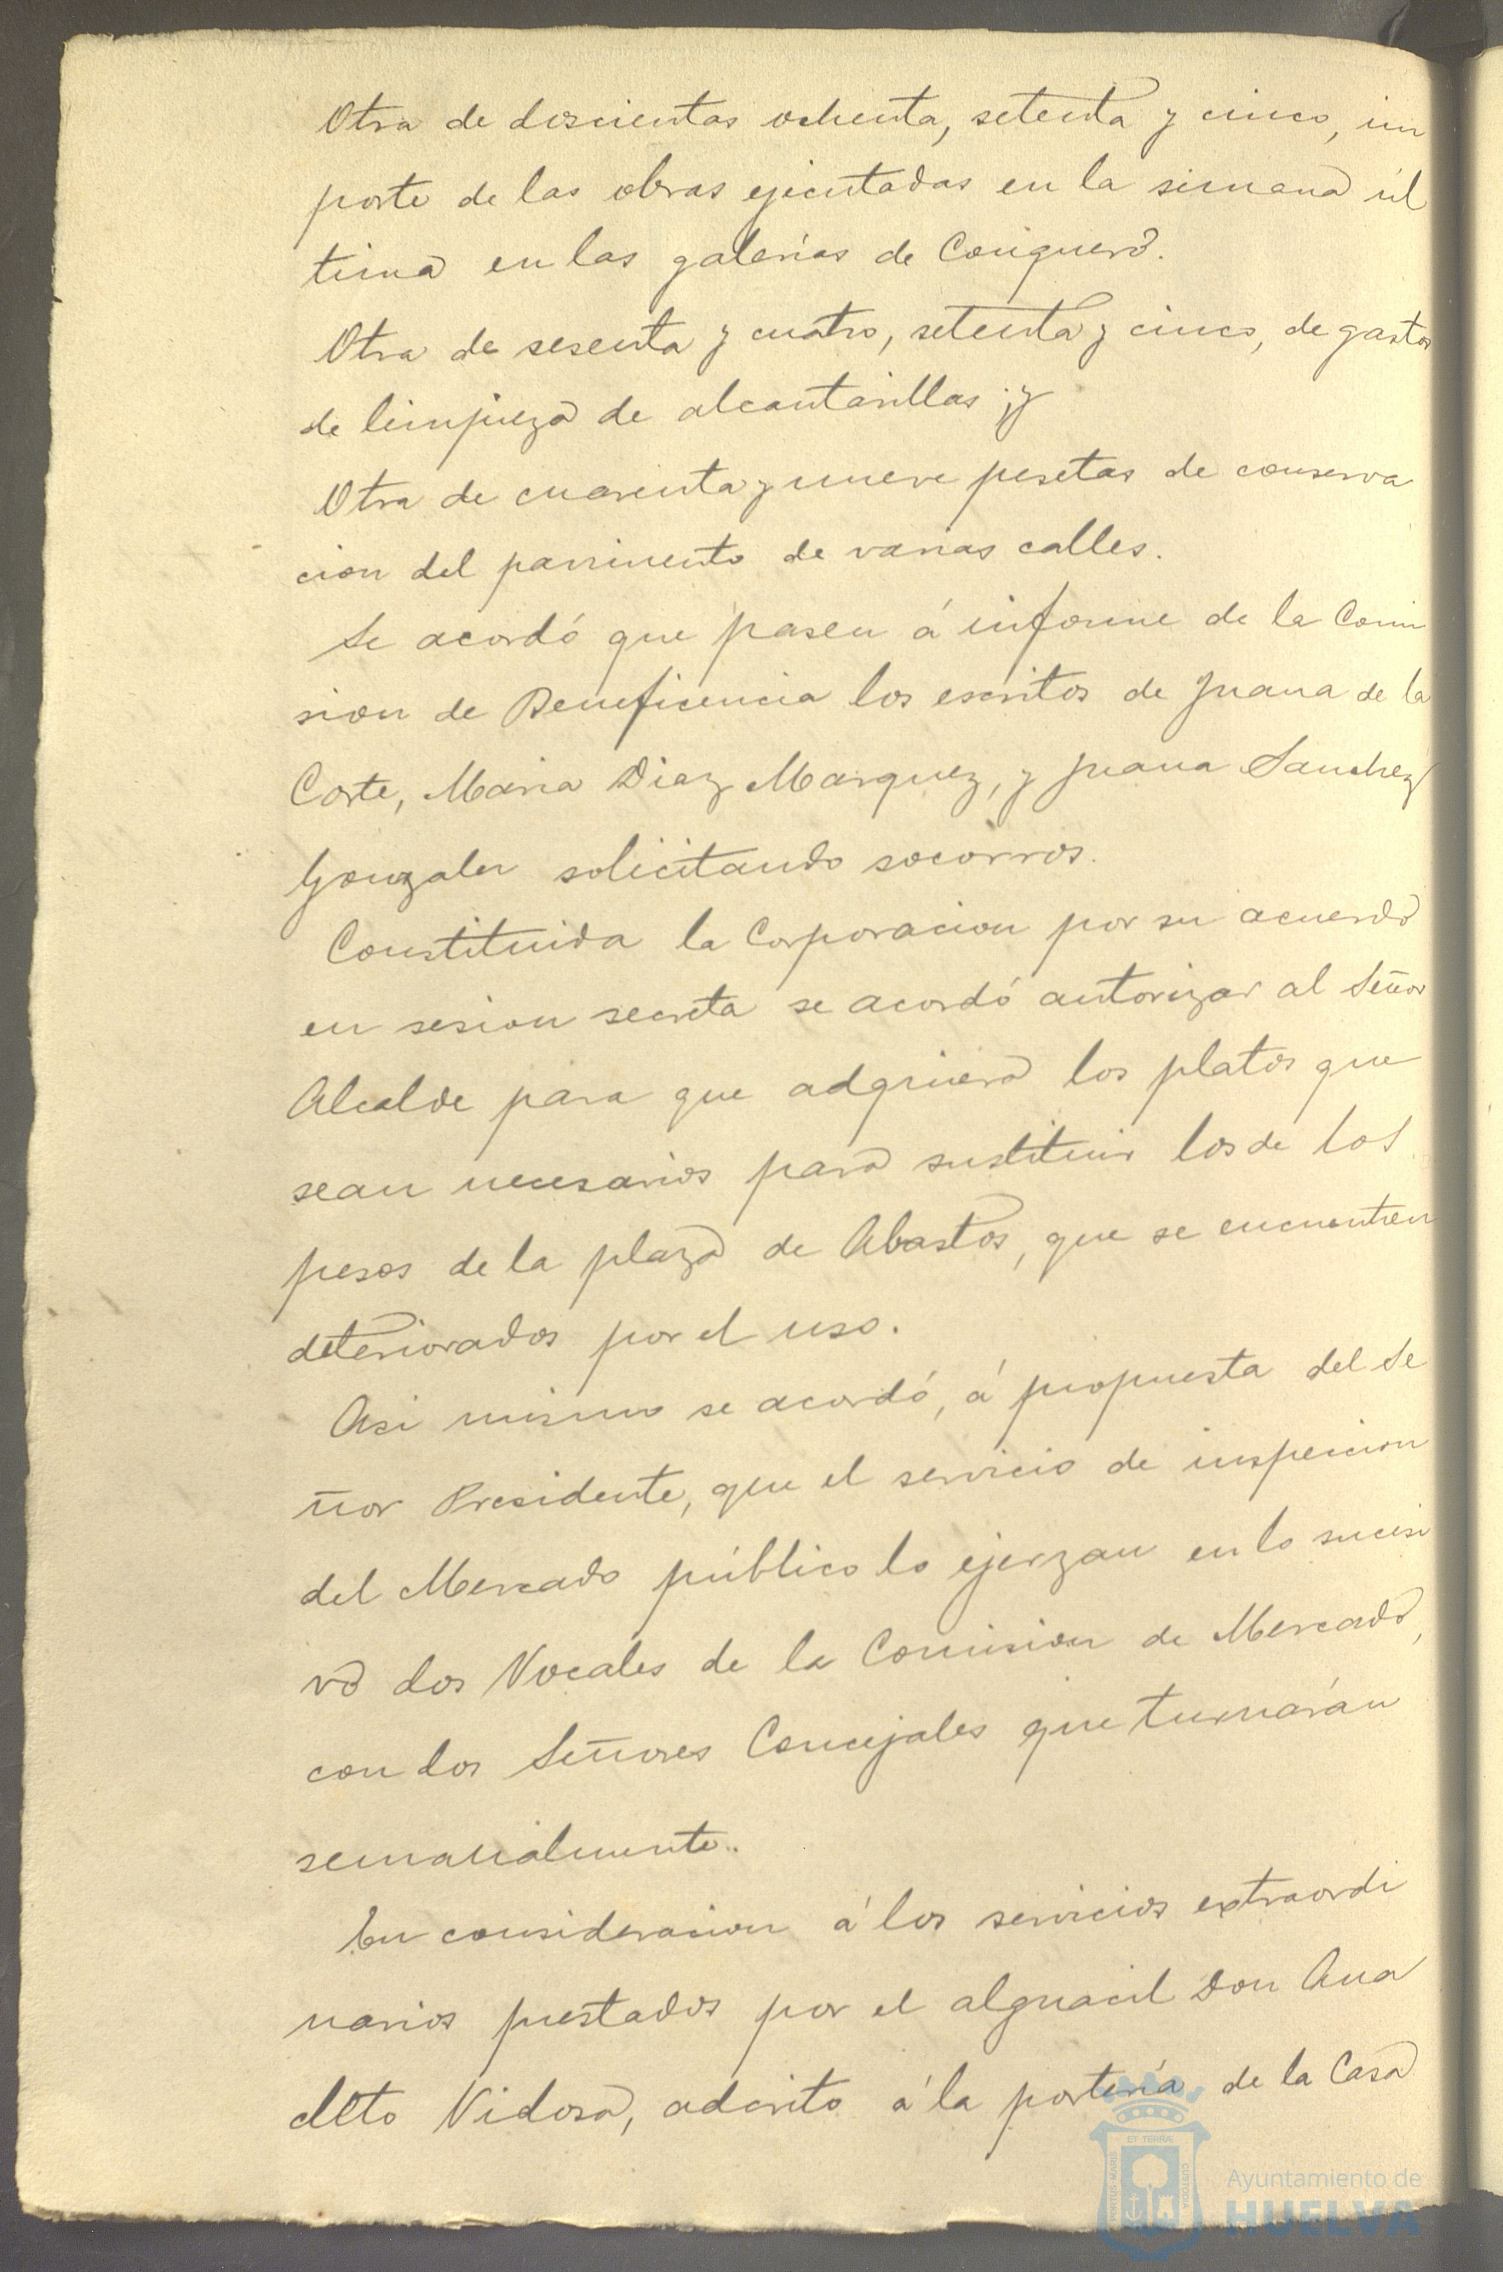 Otra de doscientas ochenta, setenta y cinco, im
porte de las obras ejecutadas en la semana úl
tima en las galerías de Conquero.
Otra de sesenta y cuatro, setenta y cinco, de gastos
de limpieza de alcantarillas; y
Otra de cuarenta y nueve pesetas de conserva
cion del pavimento de varias calles.
Se acordó que pasen á informe de la Comi
sion de Beneficencia los escritos de Juana de la
Corte, Maria Diaz Marquez, y Juana Sanchez
Gonzalez solicitando socorros.
Constituida la Corporacion por su acuerdo
en sesion secreta se acordó autorizar al Señor
Alcalde para que adquiera los platos que
sean necesarios para sustituir los de los
pesos de la plaza de Abastos, que se encuentren
deteriorados por el uso.
Asi mismo se acordó, á propuesta del Se
ñor Presidente, que el servicio de inspeccion
del Mercado público lo ejerzan en lo sucesi
vo dos Vocales de la Comision de Mercado,
con dos Señores Concejales que turnarán
semanalmente.
En consideracion á los servicios extraordi
narios prestados por el alguacil Don Ana
cleto Vidosa, adcrito á la portería de la Casa
PORTUS MARIS ET TERRÆ CUSTODIA
Ayuntamiento de
HUELVA